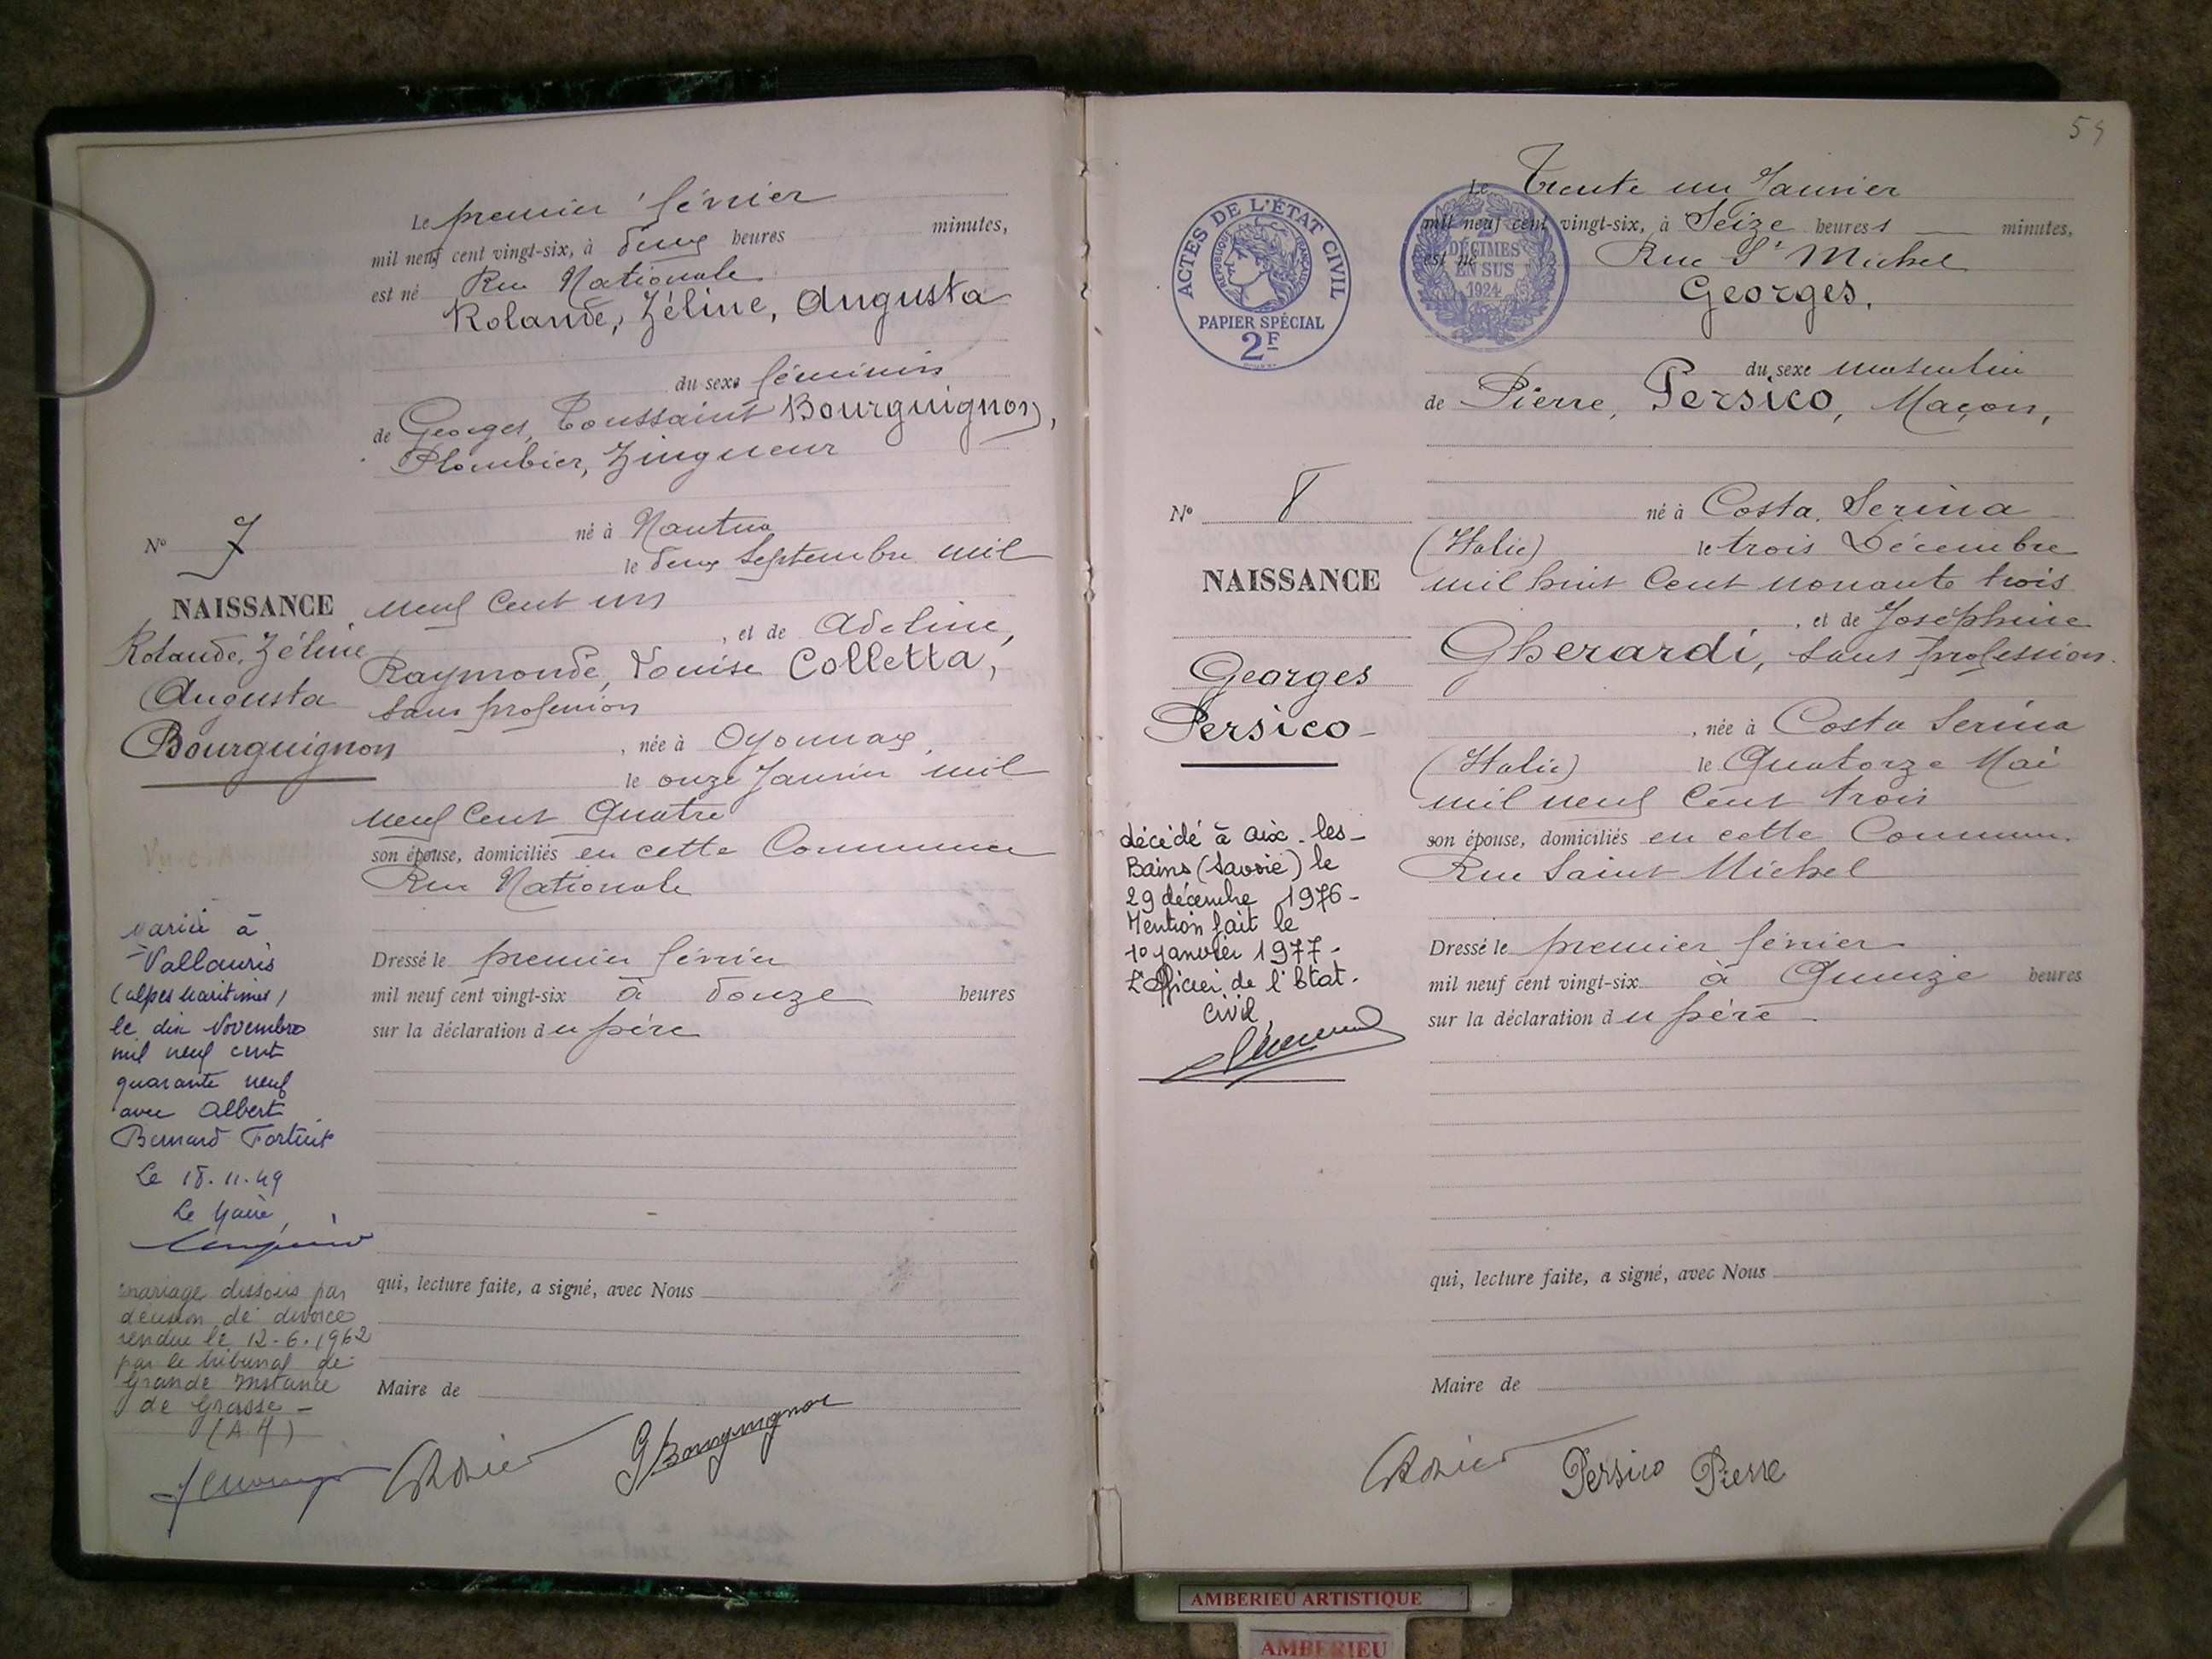 Le premier février
mil neuf cent vingt-six, à deux heures minutes,
est né Rue Nationale
Rolande, Zéline, Augusta
du sexe féminin
de Georges, Toussaint Bourguignon,
Plombier, Zingueur
né à Nantua
le deux Septembre mil
neuf cent un
, et de Adeline,
Raymonde, Louise Colletta,
sans profession
, née à Oyonnax,
le onze Janvier mil
neuf cent Quatre
son épouse, domiciliés en cette Commune
Rue Nationale
Dressé le premier février
mil neuf cent vingt-six à douze heures
sur la déclaration du père
qui, lecture faite, a signé, avec Nous
Maire de
G Bourguignon
N° 7
NAISSANCE
Rolande, Zéline
Augusta
Bourguignon
Mariée à
Vallauris
(Alpes Maritimes)
le dix Novembre
mil neuf cent
quarante neuf
avec Albert
Bernard
Le 18.11.49
Le Maire,
mariage dissous par
décision de divorce
rendue le 12-6-1962
par le tribunal de
Grande Instance
de Grasse -
54
ACTES DE L'ÉTAT CIVIL
RÉPUBLIQUE FRANÇAISE
PAPIER SPÉCIAL
2F
2
DÉCIMES
EN SUS
1924
Le Trente un Janvier
mil neuf cent vingt-six, à Seize heures minutes,
est né Rue St Michel
Georges,
du sexe masculin
de Pierre, Persico, Maçon,
né à Costa Serina
(Italie) le trois Décembre
mil huit cent nonante trois
, et de Joséphine
Gherardi, sans profession.
, née à Costa Serina
(Italie) le Quatorze Mai
mil neuf cent trois
son épouse, domiciliés en cette Commune.
Rue Saint Michel
Dressé le premier février
mil neuf cent vingt-six à Quinze heures
sur la déclaration du père
qui, lecture faite, a signé, avec Nous
Maire de
Persico Pierre
N° 8
NAISSANCE
Georges
Persico
décédé à Aix-les-
Bains (Savoie) le
29 décembre 1976-
Mention fait le
10 janvier 1977-
L'Officier de l'Etat-
Civil,
AMBERIEU ARTISTIQUE
AMBERIEU